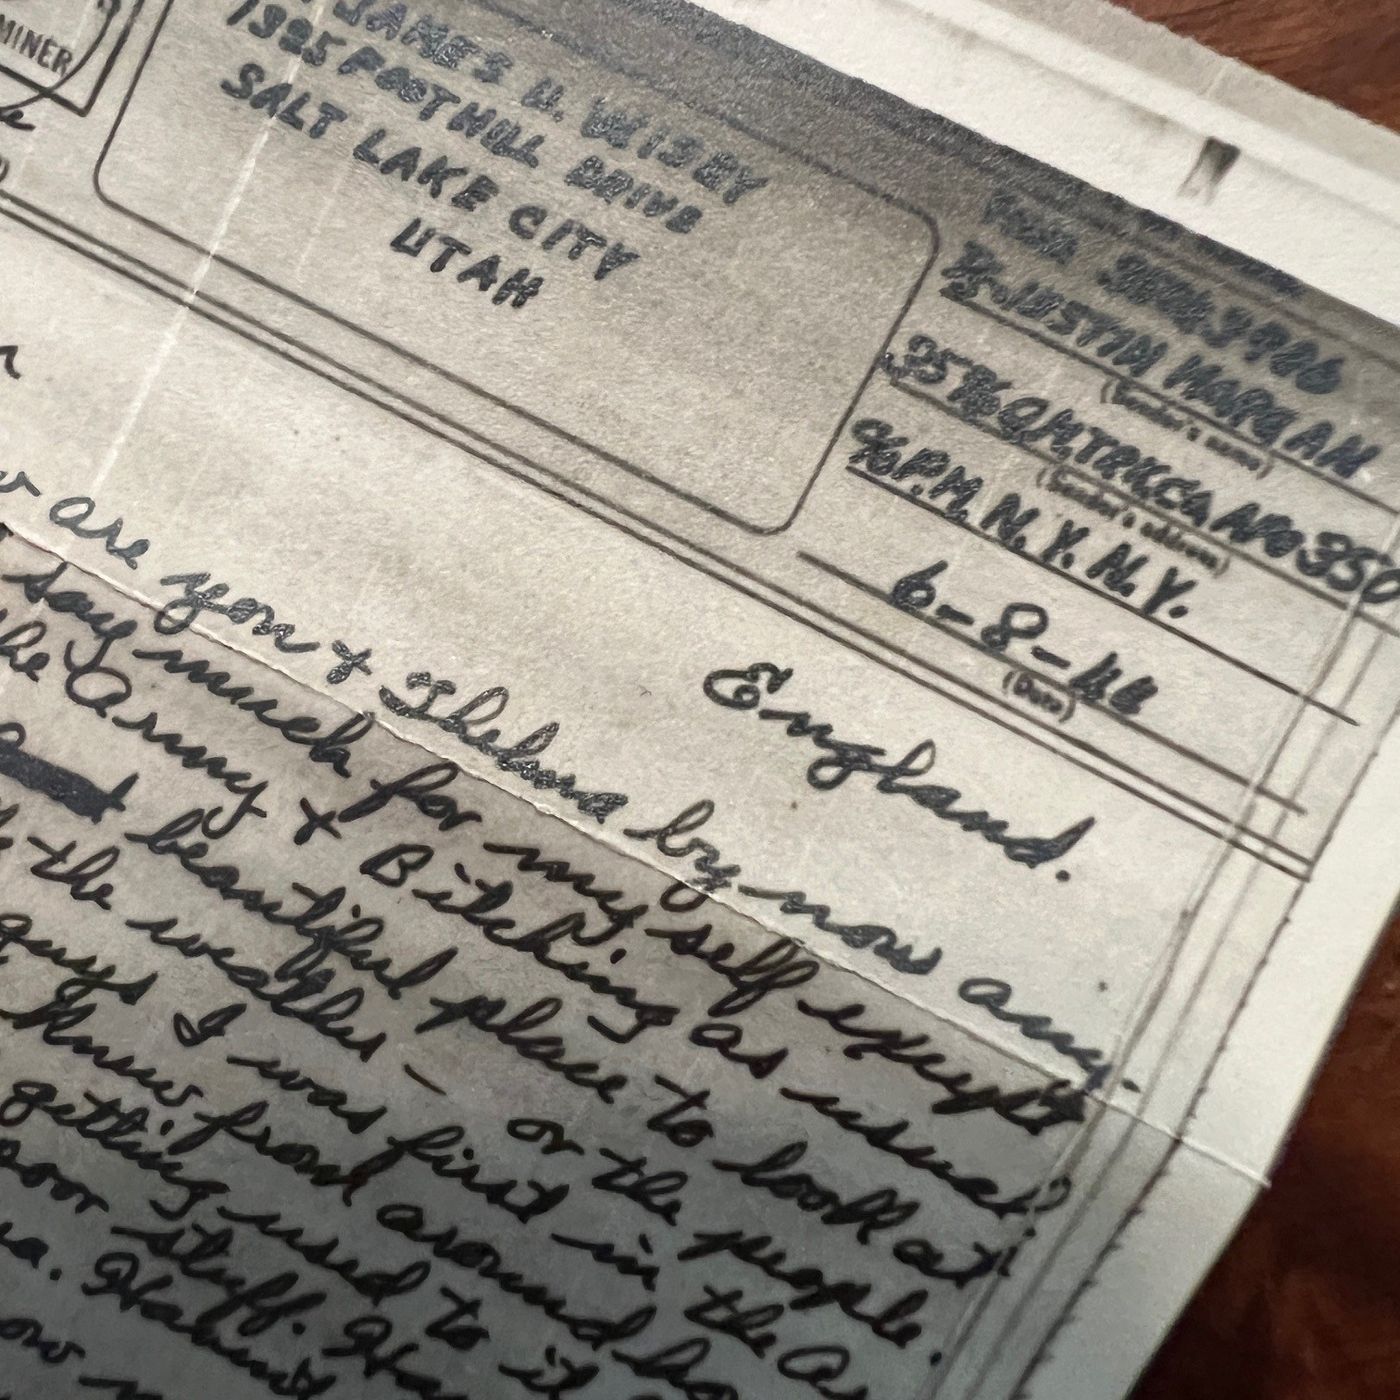 MINER
JAMES U. WEISBY
1395 FOOTHILL DRIVE
SALT LAKE CITY
UTAH
JUSTIN MORGAN
(Sender's name)
3596 Q.M. TRK. CO. APO 350
(Sender's address)
% P.M. N.Y. N.Y.
6-8-44
(Date)
England.
are you & Thelma by now any-
say much for my self except
the Army & Bitching as usual
beautiful place to look at
the weather - or the people.
guys I was first in the
know from around
getting used to it
poor stuff.